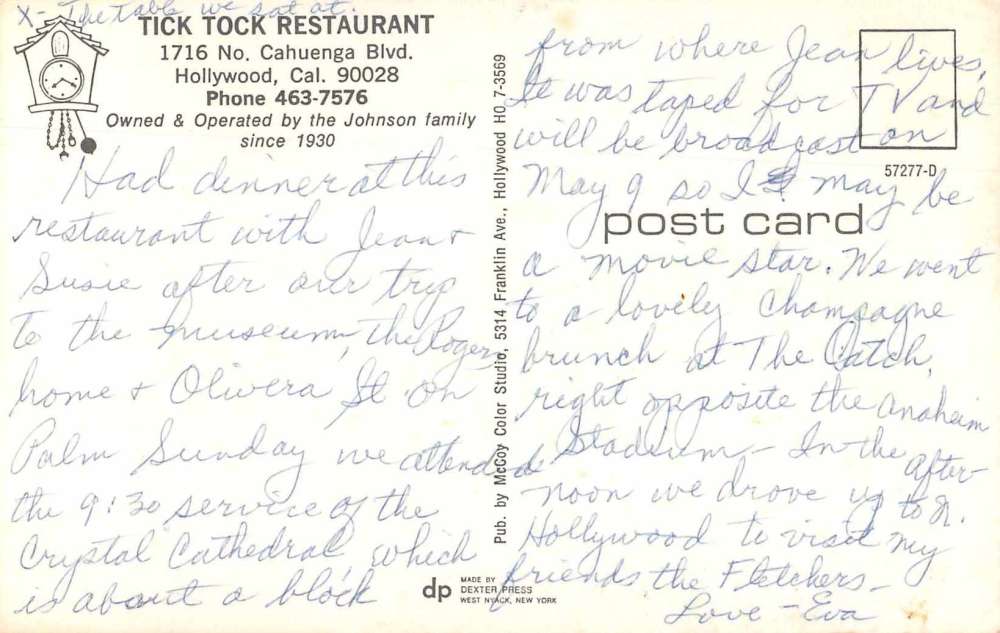 X- The table we sat at.
TICK TOCK RESTAURANT
1716 No. Cahuenga Blvd.
Hollywood, Cal. 90028
Phone 463-7576
Owned & Operated by the Johnson family
since 1930
Had dinner at this
restaurant with Jean &
Susie after our trip
to the museum, the Rogers
home & Olivera St. On
Palm Sunday we attended
the 9:30 service of the
Crystal Cathedral, which
is about a block
Pub. by McCoy Color Studio, 5314 Franklin Ave., Hollywood HO 7-3569
dp
MADE BY
DEXTER PRESS
WEST NYACK, NEW YORK
57277-D
post card
from where Jean lives.
It was taped for TV and
will be broadcast on
May 9 so I may be
a movie star. We went
to a lovely champagne
brunch at The Catch,
right opposite the Anaheim
Stadium - In the after-
noon we drove up to N.
Hollywood to visit my
friends the Fletchers -
Love - Eva